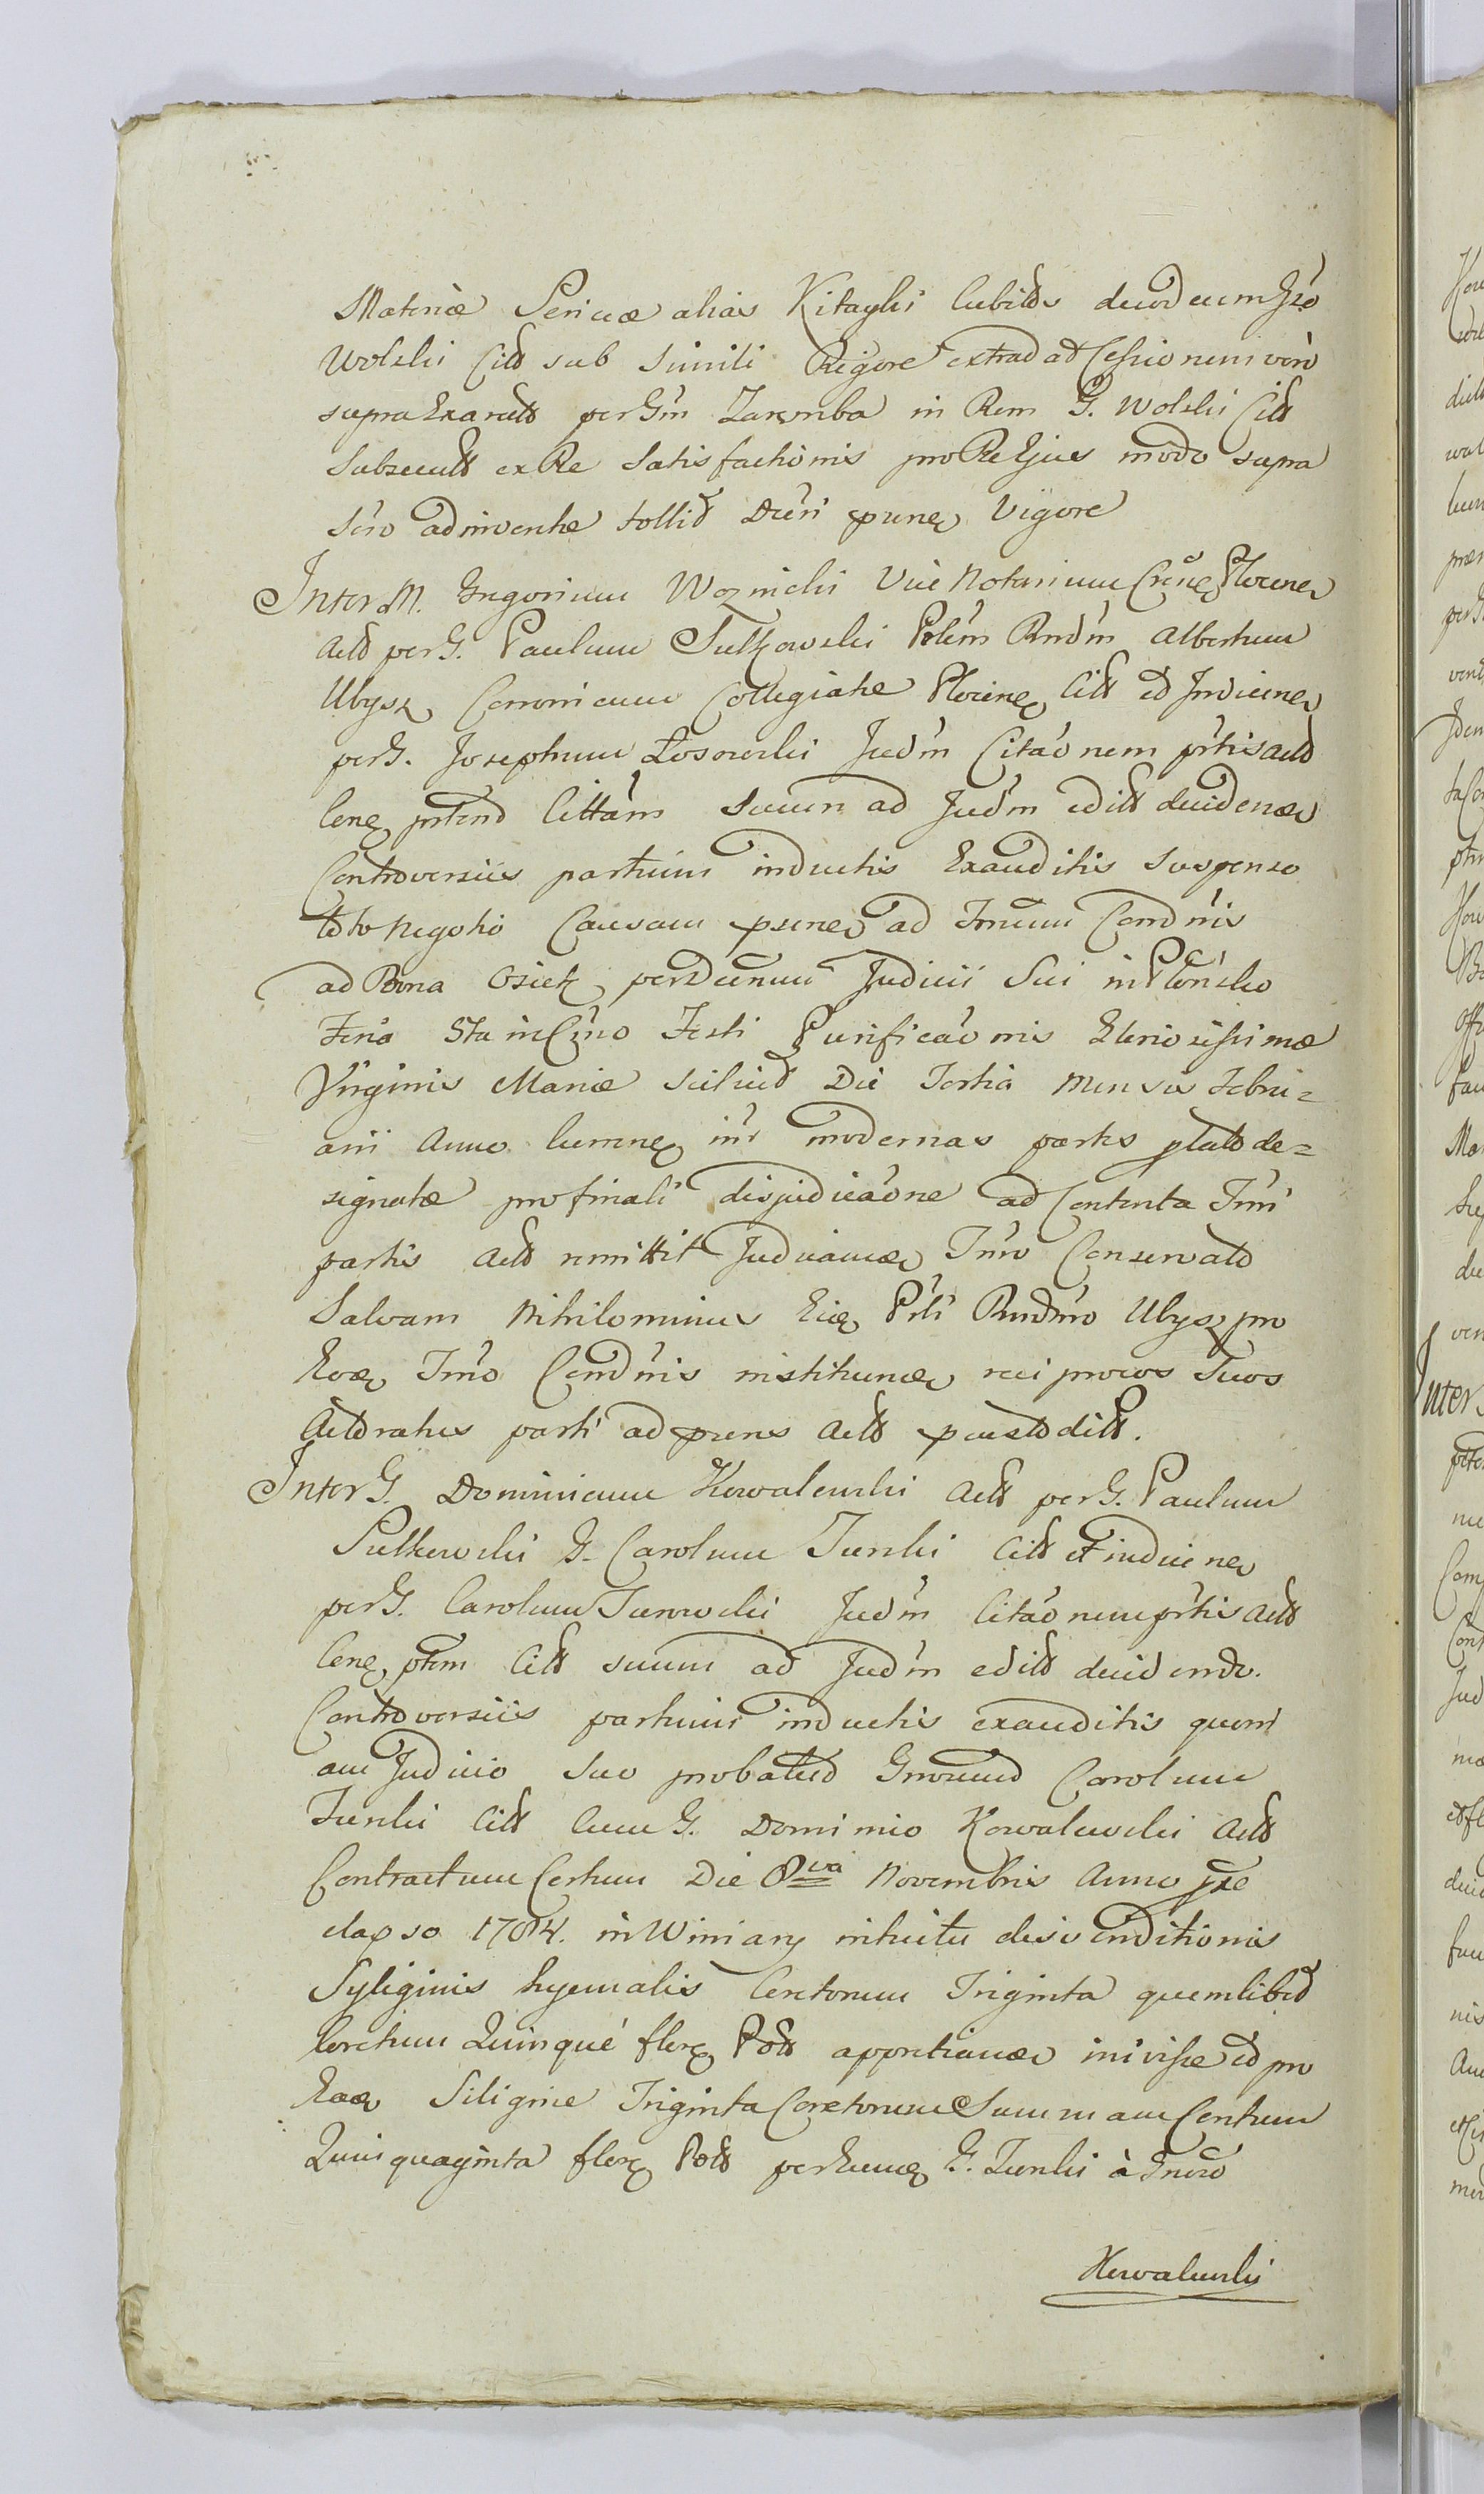 Materiæ Sericæ alias Kitayki cubitos duodecim Gso
Wolski Citt sub simili Rigore extradat Cessionem vero
supra Exaratt per Gm Zaremba in Rem G. Wolski Citt
subsecutt ex Re satisfactionis pro Re Ejus modo supra
sero adinventæ tollit Dcri pnne Vigore
Inter M. Gregorium Woznicki Vice Notarium Plocene
Actt per G. Paulum Sutkowski Plem Rndm Albertum
Ubysz Canonicum Collegiatæ Plocine Citt et Indicine
per G. Josephum Łosowski Judm Citaonem prtis actt
cene prtend Cittam suum ad Judm editt decidenæ
Controversiis partium inductis Exauditis suspenso
toto negotio Causam psene ad Tmnum Condnis
ad Bona Osiek per Decnum Judicii sui in Płońsko
Feria 5ta in Cmo Festi Purificaonis Gloriosissimæ
Virginis Mariæ scilicet Die Tertia Mensis Febru=
arii Anno currne inr modernas partes statto de=
signatæ pro finali disjudicaone ad Contenta Tmni
partis actt remittit Judicawæ Tmno Conservato
Salvam nihilominus Eide Prli Rndmo Ubysz pro
Eodæ Tmno Condnis instituenæ reciprocos suos
Actoratus parti ad psens actt pcustoditt.
Inter G. Dominicum Kowalewski Actt per G. Paulum
Sutkowski G. Carolum Turski Citt et indicine
per G. Carolum Turowski Judm Citaonem prtis Actt
Cene ptem Citt suum ad Judm editt decidende.
Controversiis partium inductis exauditis quoni
am Judicio suo probatud Gnorund Carolum
Turski Citt Cum G. Dominico Kowalewski Actt
Contractum Certum Die 8va Novembris Anno pxe
elapso 1784. in Winiary intuitu disvenditionis
Syliginis hyemalis Coretorum Triginta quemlibet
Coretum Quinque flore Pott appretiawæ inivisse et pro
Eadæ Siligine Triginta Coretorum Summam Centum
Quinquaginta flore Pott per Eunde G. Turski à Gnoro
Kowalewski